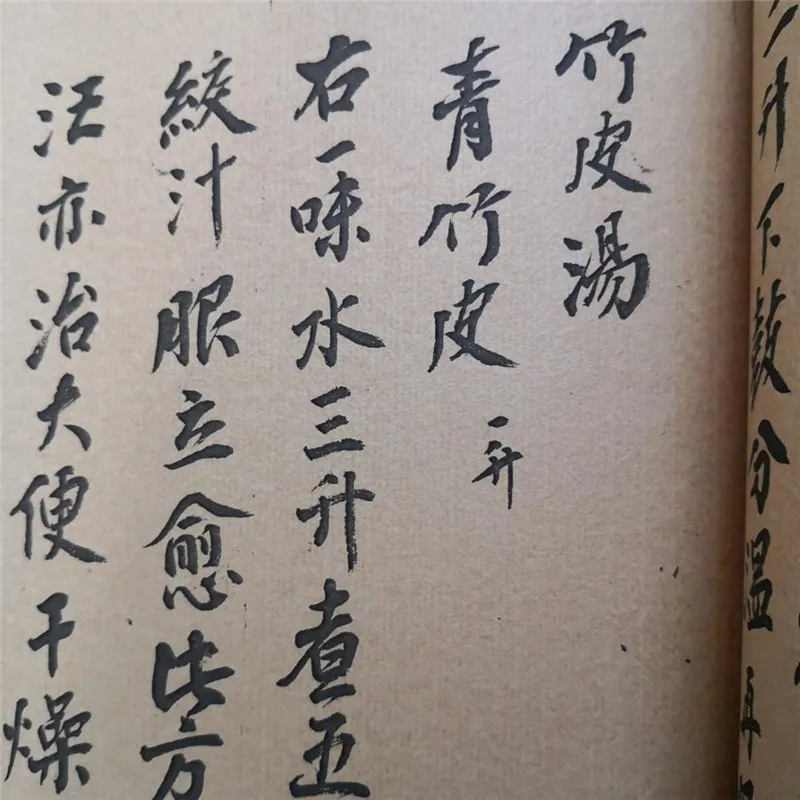 升下鼓分温再
竹皮湯
青竹皮 一升
右一味水三升煮五
絞汁服立愈此方
汪亦治大便干燥